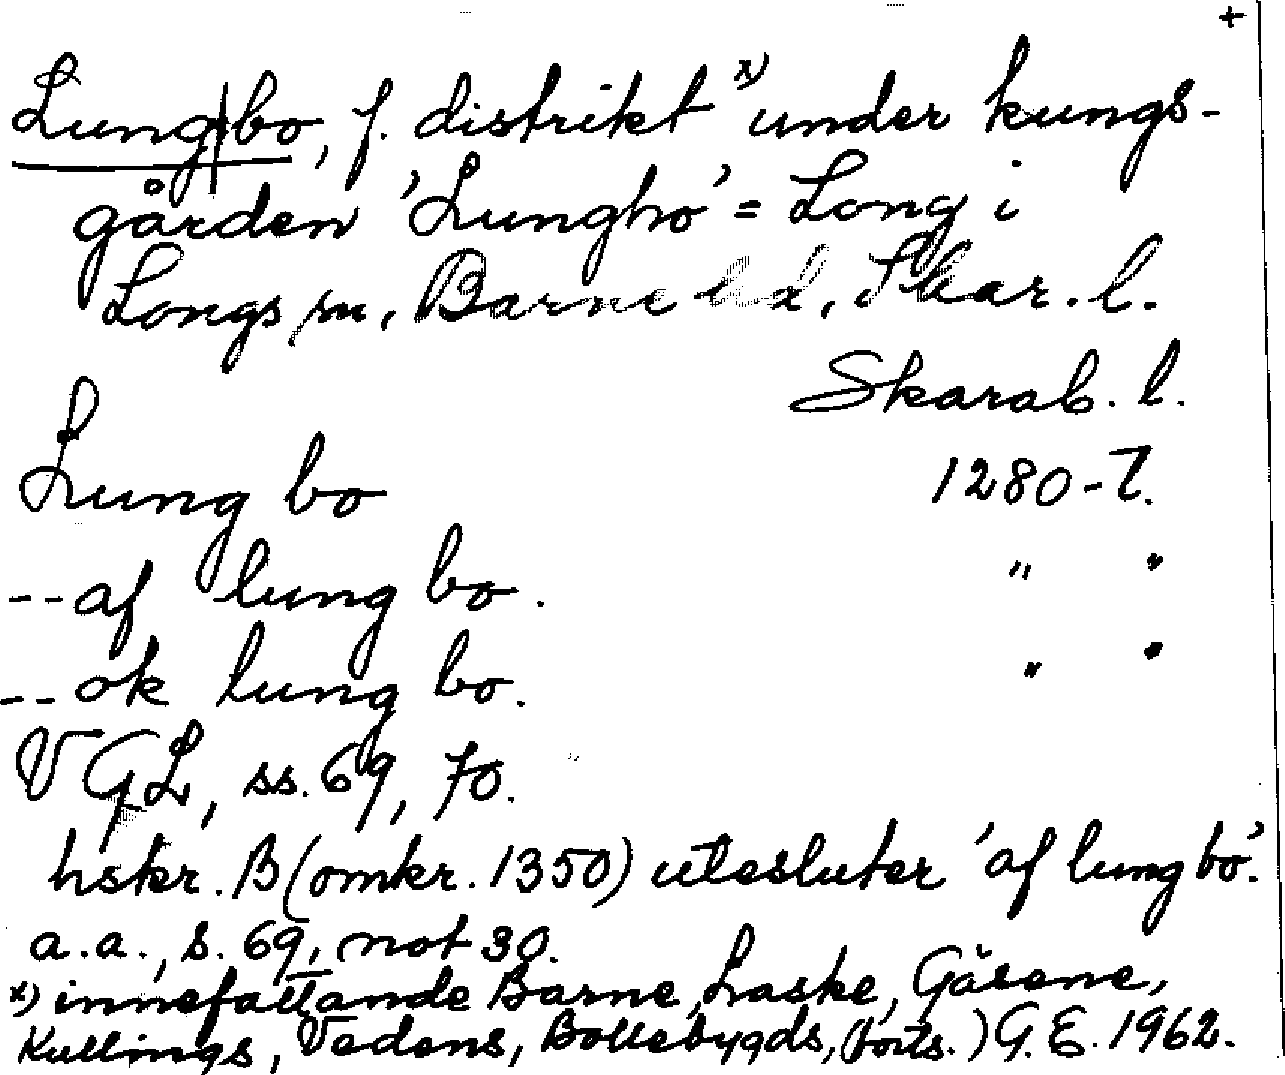 +
Lung|bo, f. distrikt x) under kungs-
gården 'Lungho' = Long i
Longs sn, Barne hd, Skar. l.
Skarab. l.
Lung bo 1280-t.
-- af lung bo. " "
-- ok lung bo. " "
VGL, ss. 69, 70.
hskr. B (omkr. 1350) utesluter 'af lung bo'.
a.a., s. 69, not 30.
x) innefattande Barne, Laske, Gäsene,
Kullings, Vedens, Bollebygds, (forts.) G. E. 1962.